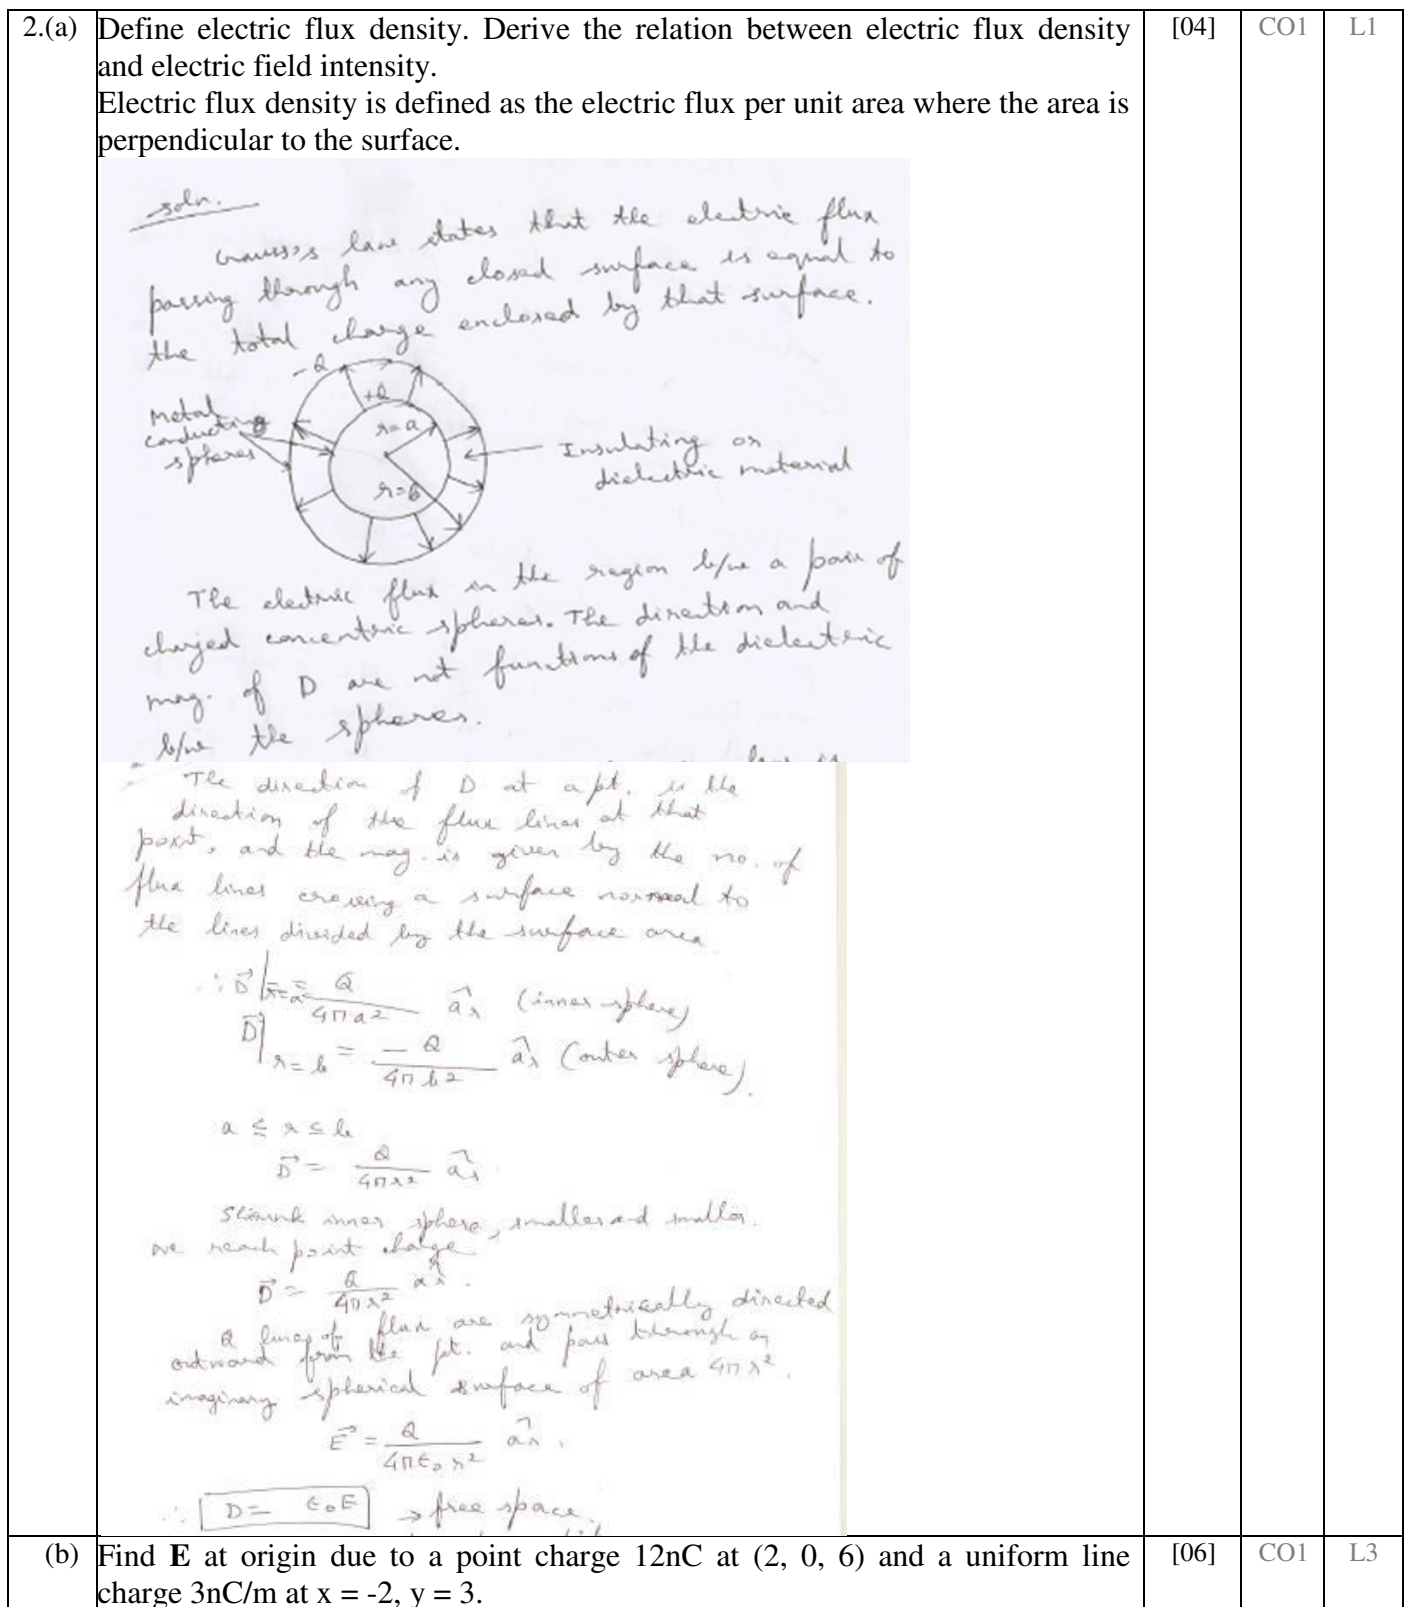 2.(a) Define electric flux density. Derive the relation between electric flux density [04] CO1 L1
and electric field intensity.
Electric flux density is defined as the electric flux per unit area where the area is
perpendicular to the surface.
soln.
Gauss's law states that the electric flux
passing through any closed surface is equal to
the total charge enclosed by that surface.
-Q
+Q
Metal
conducting
spheres
r=a
r=b
Insulating or
dielectric material
The electric flux in the region b/w a pair of
charged concentric spheres. The direction and
mag. of D are not functions of the dielectric
b/w the spheres.
The direction of D at a pt. is the
direction of the flux lines at that
point, and the mag. is given by the no. of
flux lines crossing a surface normal to
the lines divided by the surface area
∴ D⃗ |r=a = Q / 4πa² âr (inner sphere)
D⃗ |r=b = -Q / 4πb² âr (outer sphere).
a ≤ r ≤ b
D⃗ = Q / 4πr² âr
Shrunk inner sphere, smaller and smaller.
we reach point charge
D⃗ = Q / 4πr² âr.
Q lines of flux are symmetrically directed
outward from the pt. and pass through an
imaginary spherical surface of area 4πr².
E⃗ = Q / 4πε₀r² âr.
∴ D = ε₀E → free space.
(b) Find E at origin due to a point charge 12nC at (2, 0, 6) and a uniform line [06] CO1 L3
charge 3nC/m at x = -2, y = 3.